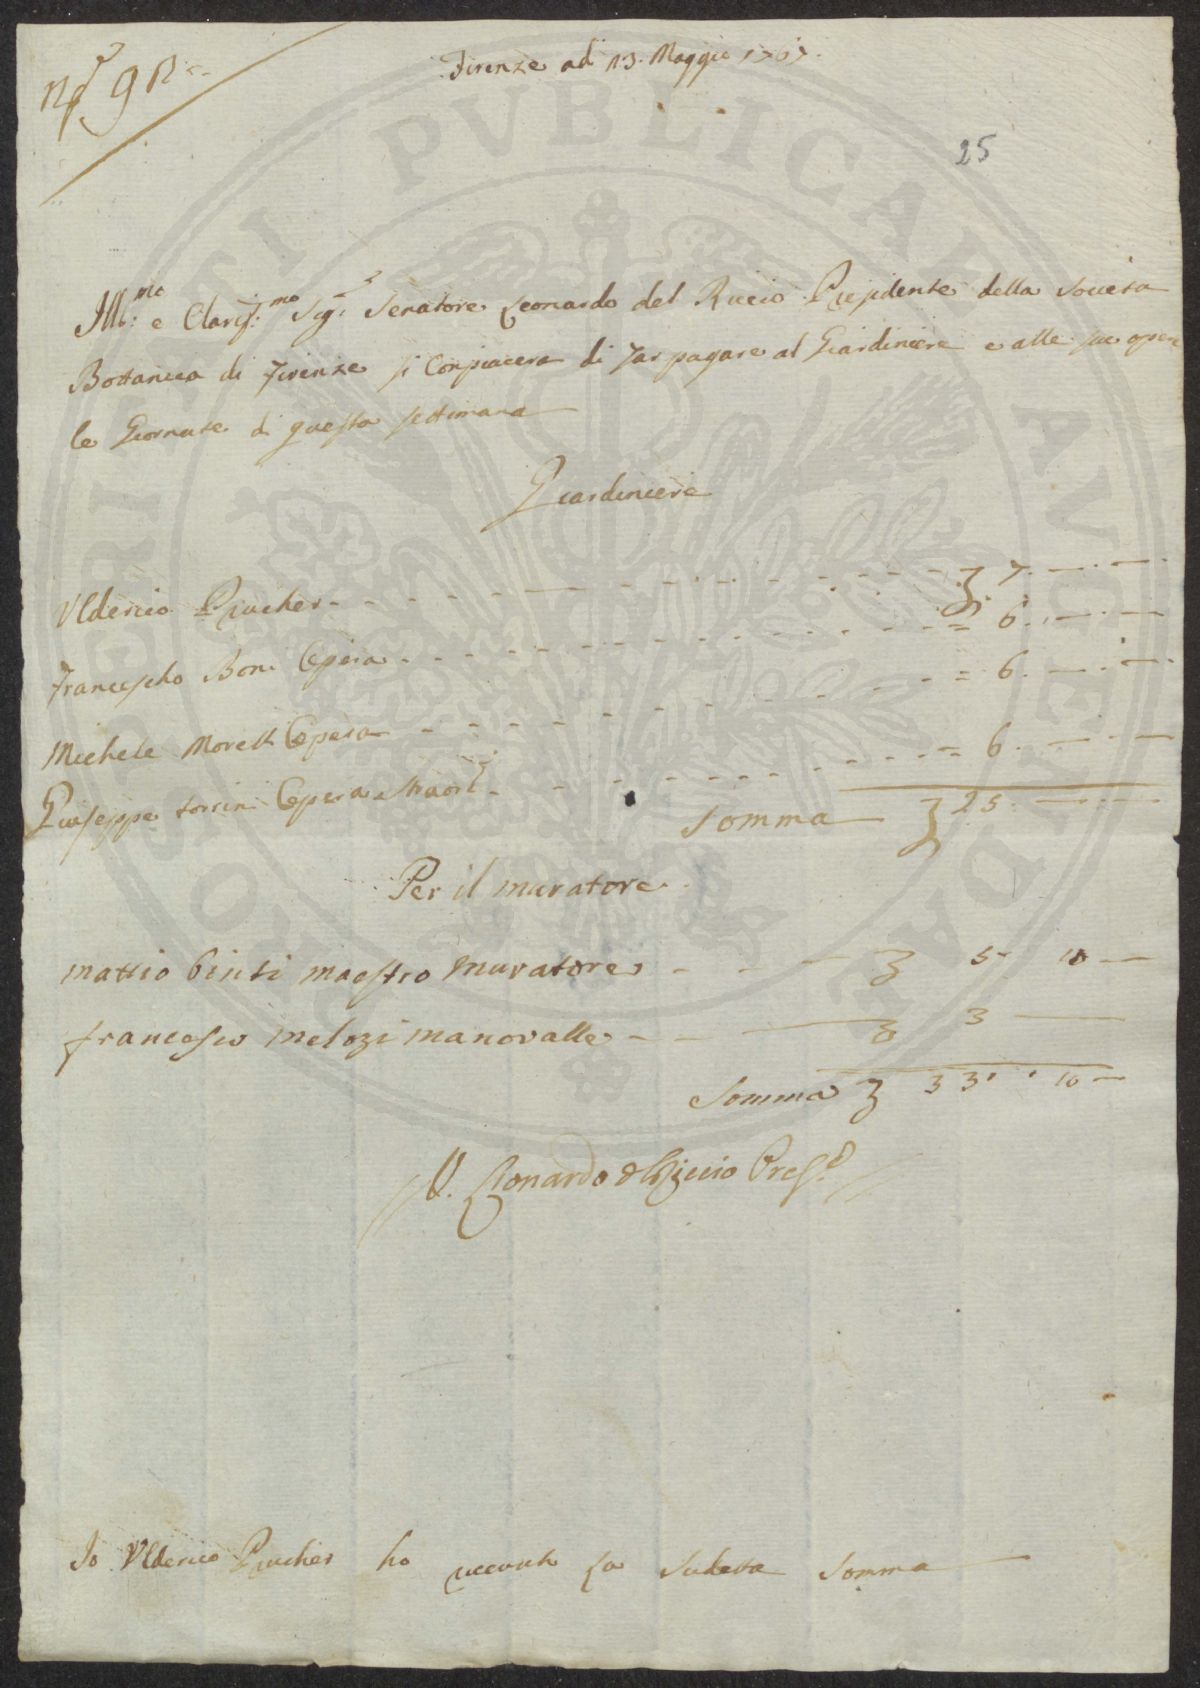 Firenze adì 13. Maggio 1767.
25
Ill.mo e Clariss.mo Sig.r Senatore Leonardo del Riccio Presidente della Società
Bottanica di Firenze si Conpiacera di far pagare al Giardiniere e alle sue opere
le Giornate di questa settimana
Giardiniere
Ulderico Prucher 7.
Francescho Boni Opera = 6.
Michele Moretti Opera = 6.
Giuseppe torrini Opera = 6.
Somma 25.
Per il muratore
mattio Cinti maestro muratore 5 10
francesco melozi manovalle 3
Somma 33. 10
V. Leonardo del Riccio Pres.e
Io Ulderico Prucher ho riceuuto la Sudetta Somma
PVBLICAE